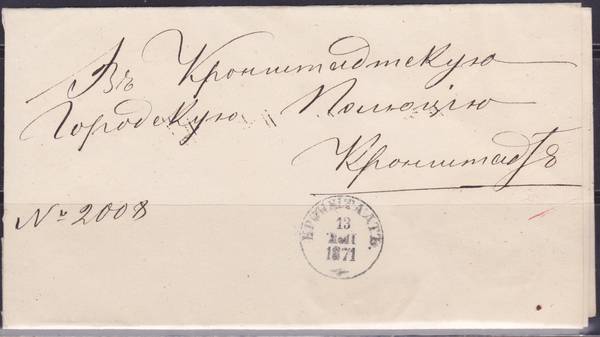 Въ Кронштадтскую
Городскую Полицію
Кронштадтъ
№ 2008
КРОНШТАДТЪ.
13
1871